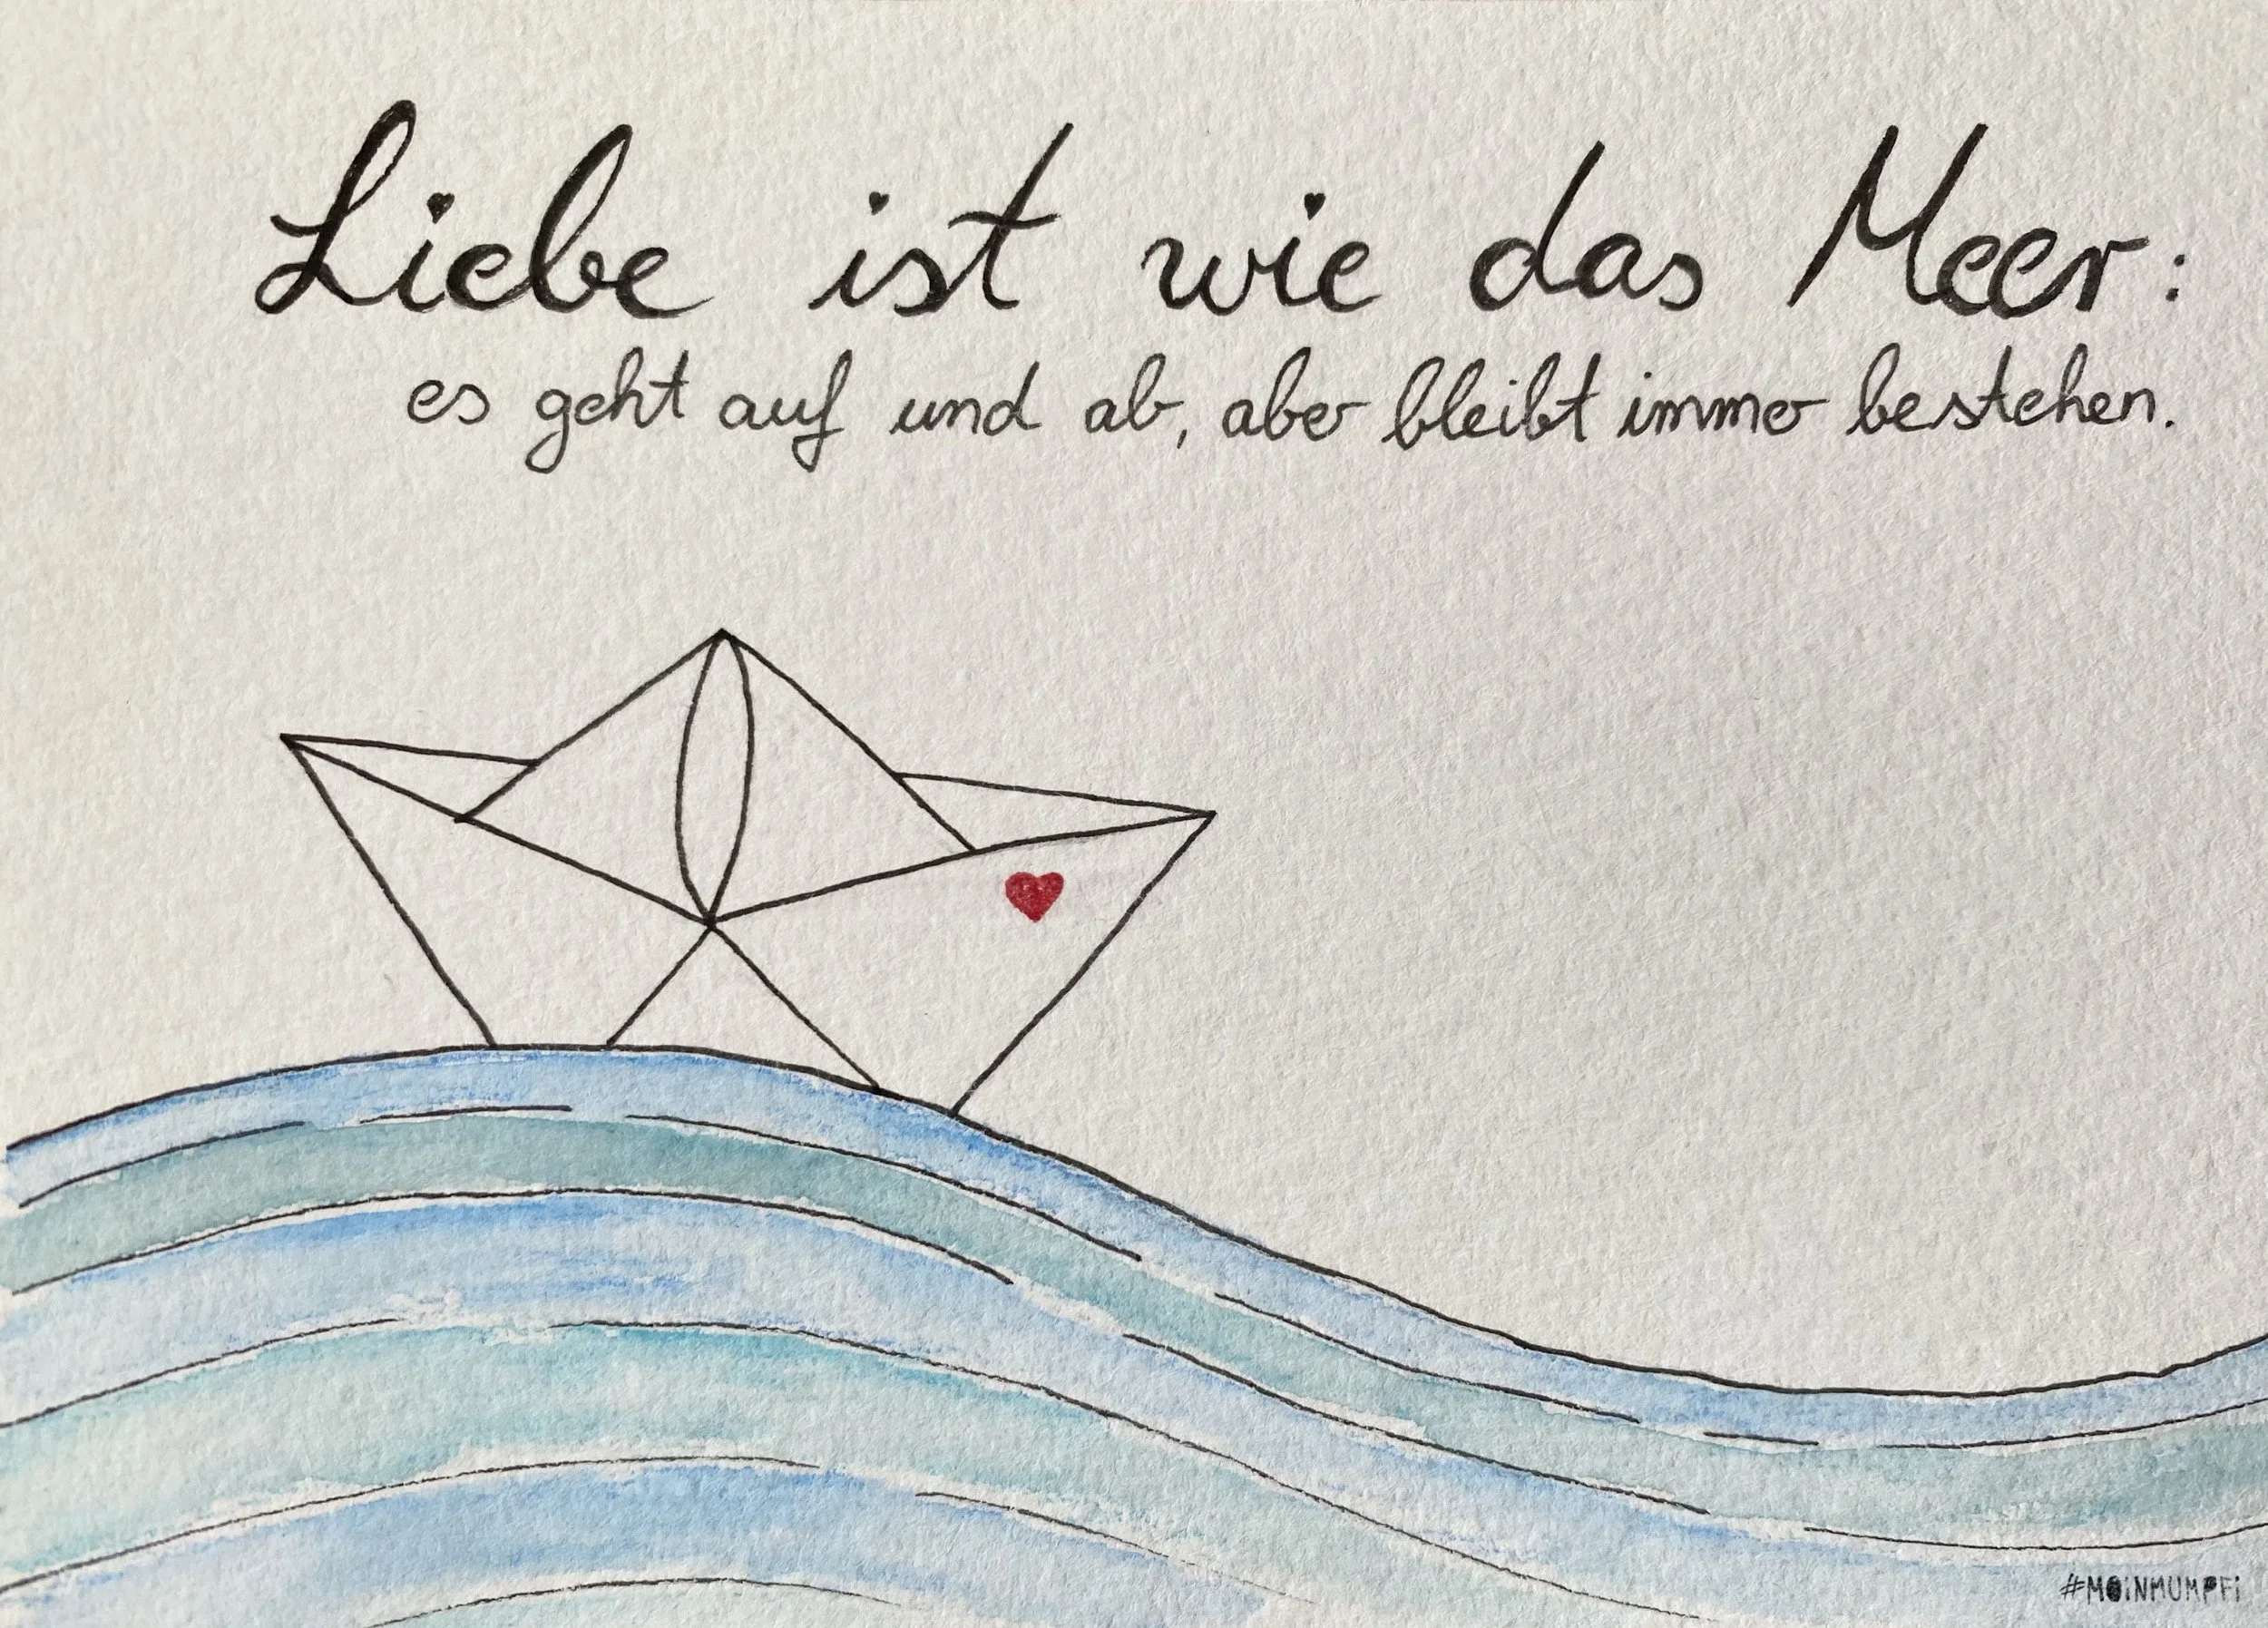 Liebe ist wie das Meer:
es geht auf und ab, aber bleibt immer bestehen.
#MOiNMUMPFi